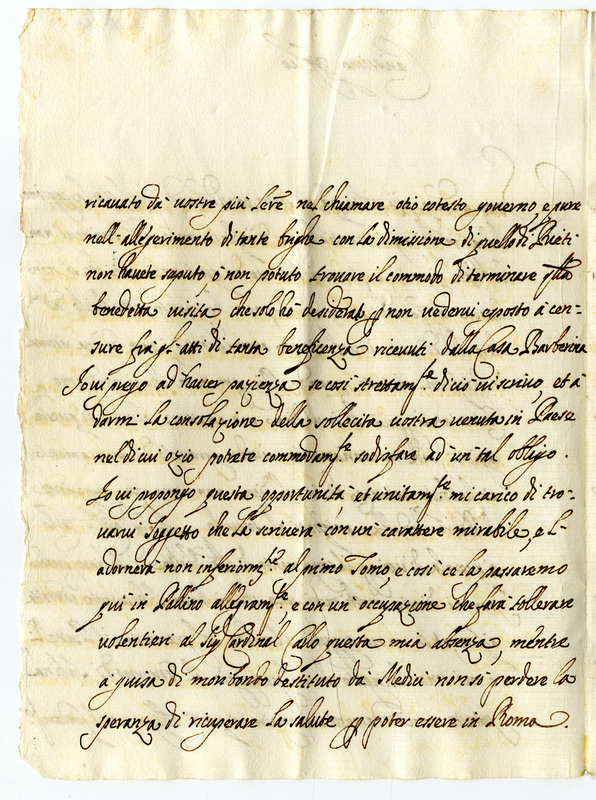 ricavato da vostre più lere nel chiamare otio cotesto governo, e pure
nell'allegerimento di tante brighe con la dimissione di quello di Rieti
non havete saputo, ò non potuto trovare il commodo di terminare
benedetta visita che solo hò desiderat p non vedervi esposto à cen=
sure fra gl'atti di tanta beneficenza ricevuti dalla Casa Barberina
Io vi prego ad haver pazienza se così strettam.te di ciò vi scrivo, et à
darmi la consolazione della sollecita vostra venuta in Paese
nel di cui ozio potrete commodam.te sodisfare ad un tal obligo.
Io vi propongo questa opportunità, et unitam.te mi carico di tro=
varvi soggetto che la scriverà con un carattere mirabile, e l'
adornerà non inferiorm.te al primo Tomo, e così ce la passaremo
quì in Palino allegram.te, e con un'occupazione che farà tollerare
volentieri al Sig Cardinal Carlo questa mia absenza, mentre
à guisa di moribondo destituto da Medici non sò perdere la
speranza di ricuperare la salute p poter essere in Roma.